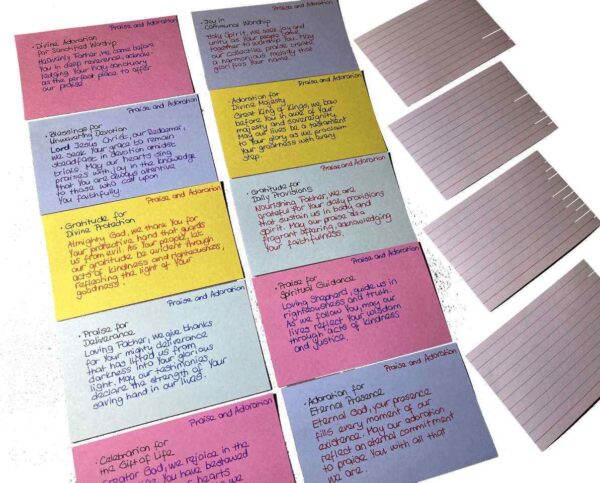 Praise and Adoration
· Divine Adoration
for Sanctified Worship
Heavenly Father, we come before
you in deep reverence, acknow-
ledging Your holy sanctuary
as the perfect place to offer
our praise
Praise and Adoration
· Blessings for
Unwavering Devotion
Lord Jesus Christ, our Redeemer,
we seek Your grace to remain
steadfast in devotion amidst
trials. May our hearts sing
praises with joy in the knowledge
that You are always attentive
to those who call upon
You faithfully
Praise and Adoration
· Gratitude for
Divine Protection
Almighty God, we thank You for
Your protective hand that guards
us from evil. As Your people, let
our gratitude be evident through
acts of kindness and righteousness,
reflecting the light of Your
goodness!
Praise and Adoration
· Praise for
Deliverance
Loving Father, we give thanks
for Your mighty deliverance
that has lifted us from
darkness into Your glorious
light. May our testimonies
declare the strength of Your
saving hand in our lives.
Praise and Adoration
· Celebration for
the Gift of Life
Creator God, we rejoice in the
You have bestowed
hearts
we
· Joy in
Communal Worship
Holy Spirit, we seek joy and
unity as Your people gather
together to worship You. May
our collective praise create
a harmonious melody that
glorifies Your name.
Praise and Adoration
· Adoration for
Divine Majesty
Great King of Kings, we bow
before You in awe of Your
majesty and sovereignty.
May our lives be a testament
to Your glory as we proclaim
Your greatness with every
step.
Praise and Adoration
· Gratitude for
Daily Provisions
Nourishing Father, we are
grateful for Your daily provisions
that sustain us in body and
spirit. May our praise be a
fragrant offering, acknowledging
Your faithfulness.
Praise and Adoration
· Praise for
Spiritual Guidance
Loving Shepherd, guide us in
righteousness and truth.
As we follow You, may our
lives reflect Your wisdom
through acts of kindness
and justice.
Praise and Adoration
· Adoration for
Eternal Presence
Eternal God, your presence
fills every moment of our
existence. May our adoration
reflect an eternal commitment
to praise You with all that
we are.